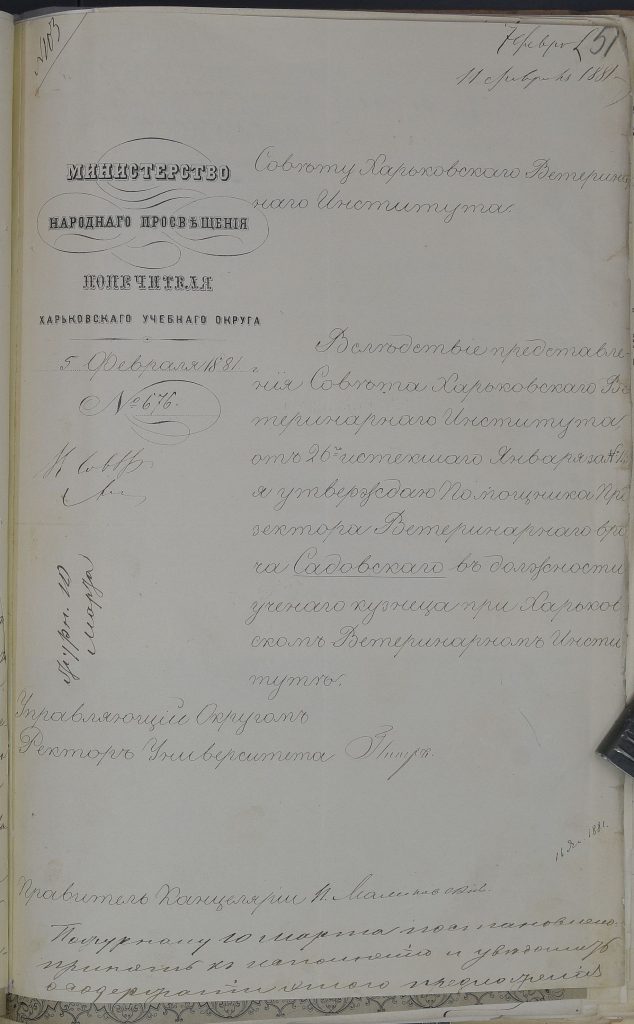 №103
7 февр 51
11 февраля 1881
МИНИСТЕРСТВО
НАРОДНАГО ПРОСВѢЩЕНІЯ
ПОПЕЧИТЕЛЯ
ХАРЬКОВСКАГО УЧЕБНАГО ОКРУГА
5 Февраля 1881 г.
№ 676.
Журн. 10
Марта
Совѣту Харьковскаго Ветерина
наго Института.
Вслѣдствіе представле-
нія Совѣта Харьковскаго Ве
теринарнаго Института
отъ 26го истекшаго Января за №
я утверждаю Помощника Про
зектора Ветеринарнаго вра
ча Садовскаго въ должности
ученаго кузнеца при Харьков
скомъ Ветеринарномъ Инсти
тутѣ.
Управляющій Округомъ
Ректоръ Университета
1881.
Правитель Канцеляріи
По журналу 10 марта постановлено
принять къ исполненію и увѣдомить
о содержаніи этого предложенія